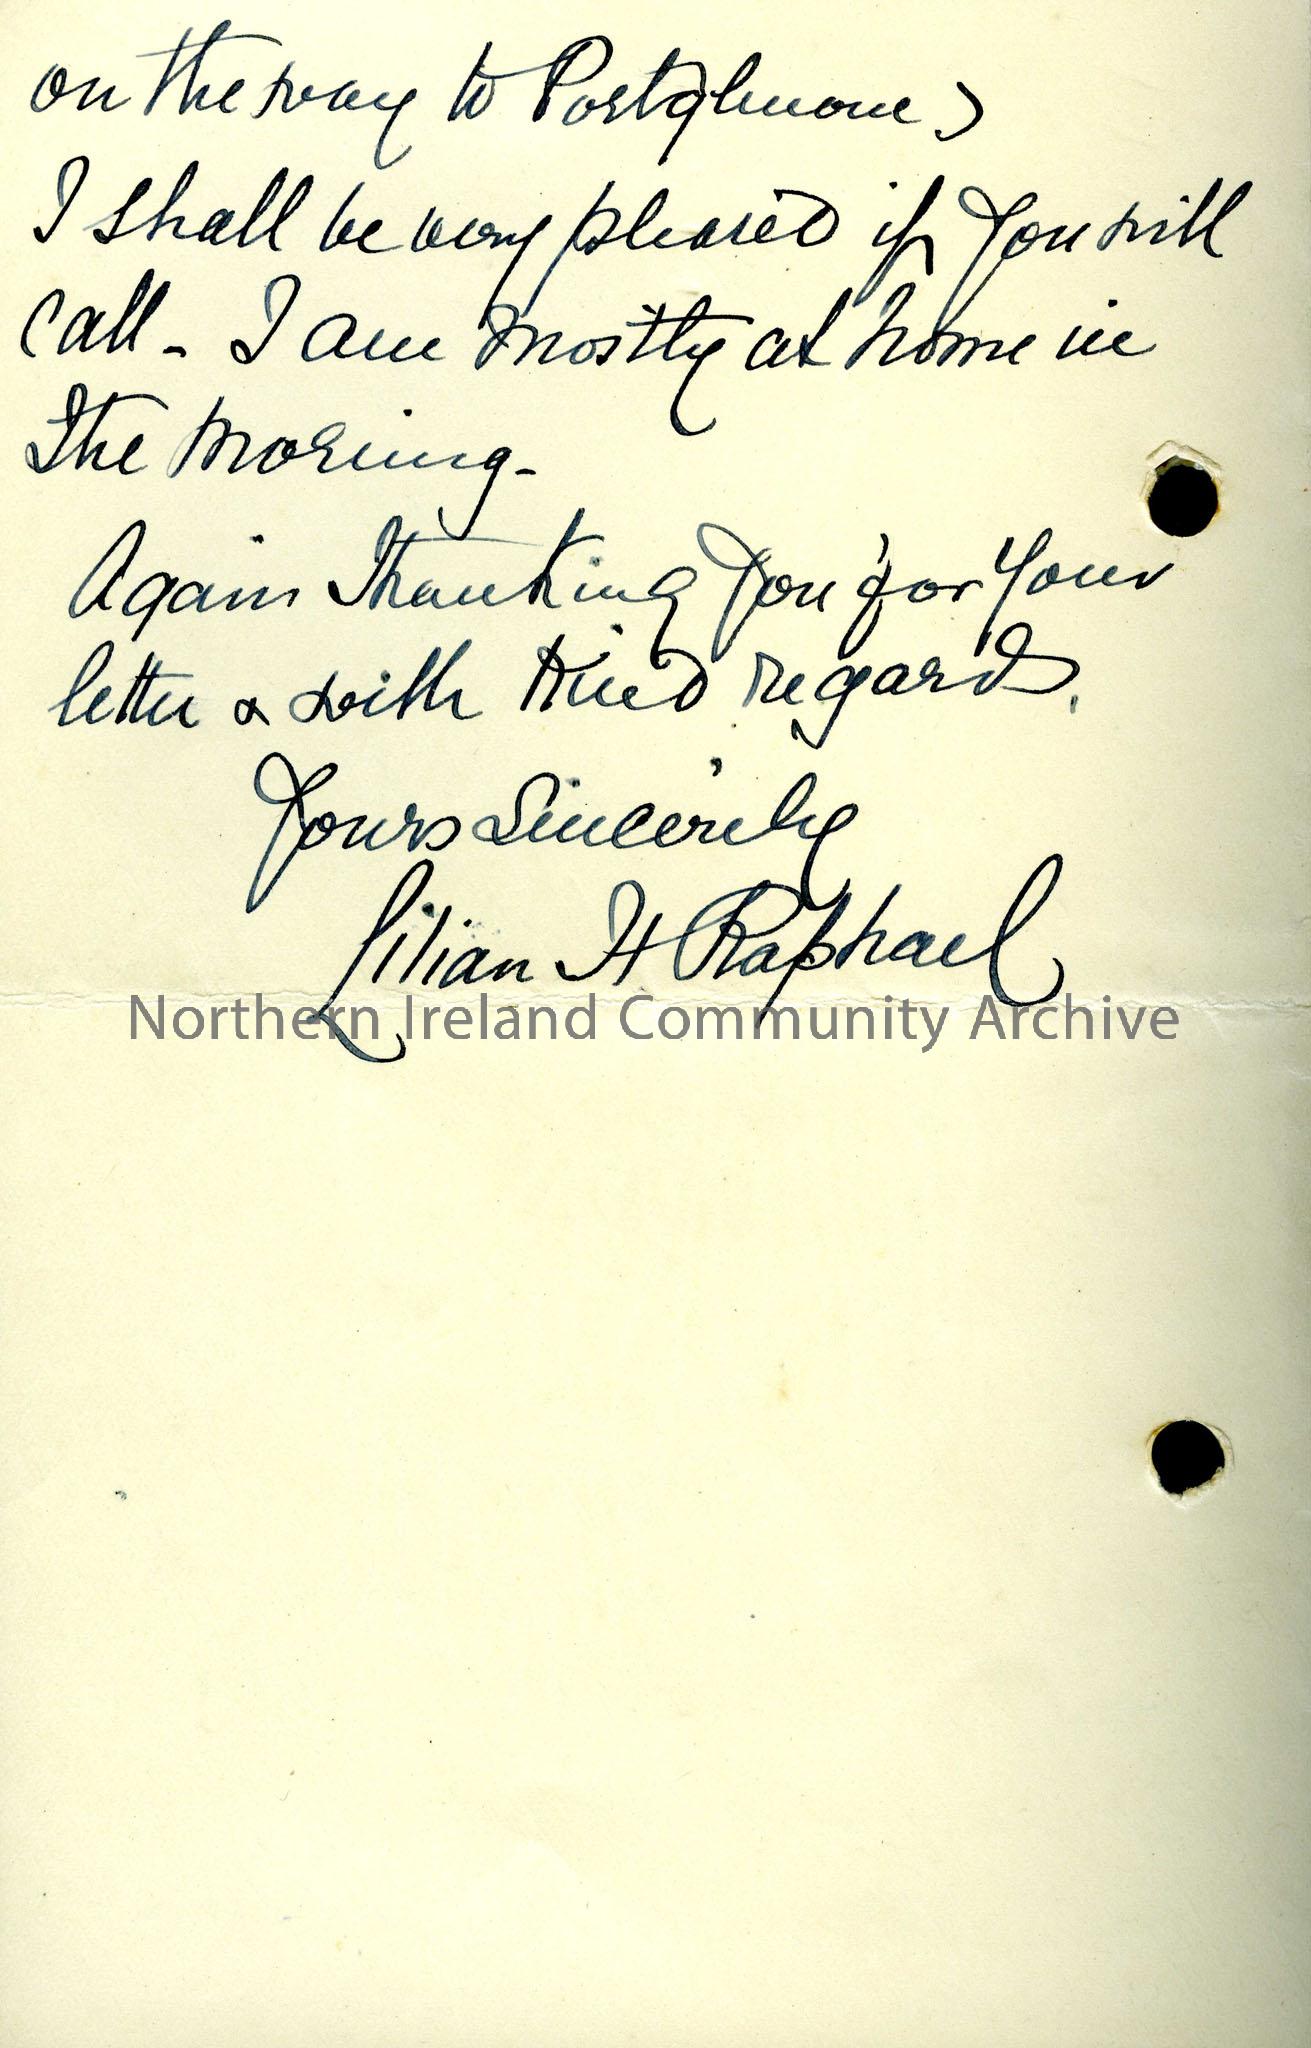 on the way to Portglenone)
I shall be very pleased if you will
call - I am mostly at home in
the morning -
Again thanking you for your
letter & with kind regards,
Yours Sincerely
Lilian H Raphael
Northern Ireland Community Archive